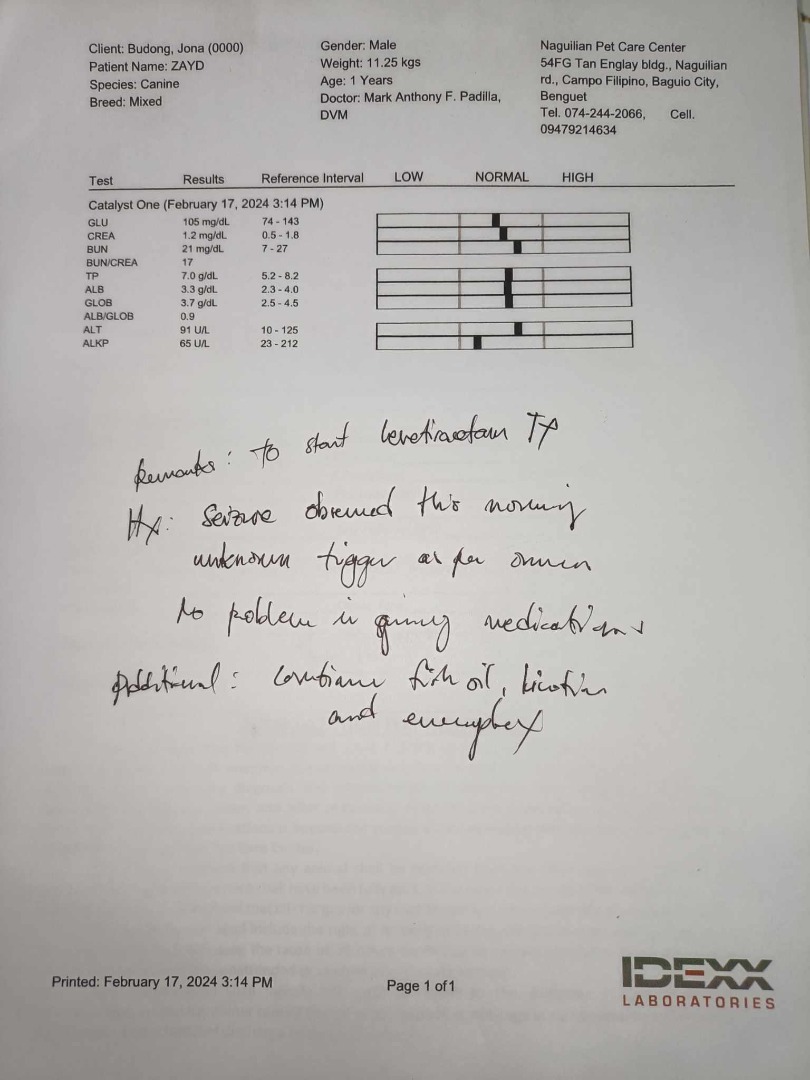 Client: Budong, Jona (0000)
Patient Name: ZAYD
Species: Canine
Breed: Mixed
Gender: Male
Weight: 11.25 kgs
Age: 1 Years
Doctor: Mark Anthony F. Padilla,
DVM
Naguilian Pet Care Center
54FG Tan Englay bldg., Naguilian
rd., Campo Filipino, Baguio City,
Benguet
Tel. 074-244-2066, Cell.
09479214634
Test Results Reference Interval LOW NORMAL HIGH
Catalyst One (February 17, 2024 3:14 PM)
GLU 105 mg/dL 74 - 143
CREA 1.2 mg/dL 0.5 - 1.8
BUN 21 mg/dL 7 - 27
BUN/CREA 17
TP 7.0 g/dL 5.2 - 8.2
ALB 3.3 g/dL 2.3 - 4.0
GLOB 3.7 g/dL 2.5 - 4.5
ALB/GLOB 0.9
ALT 91 U/L 10 - 125
ALKP 65 U/L 23 - 212
Remarks: to start levetiracetam Tx
Hx: Seizure observed this morning
unknown trigger as per owner
No problem in giving medications
Additional: continue fish oil,
and
Printed: February 17, 2024 3:14 PM
Page 1 of1
IDEXX
LABORATORIES